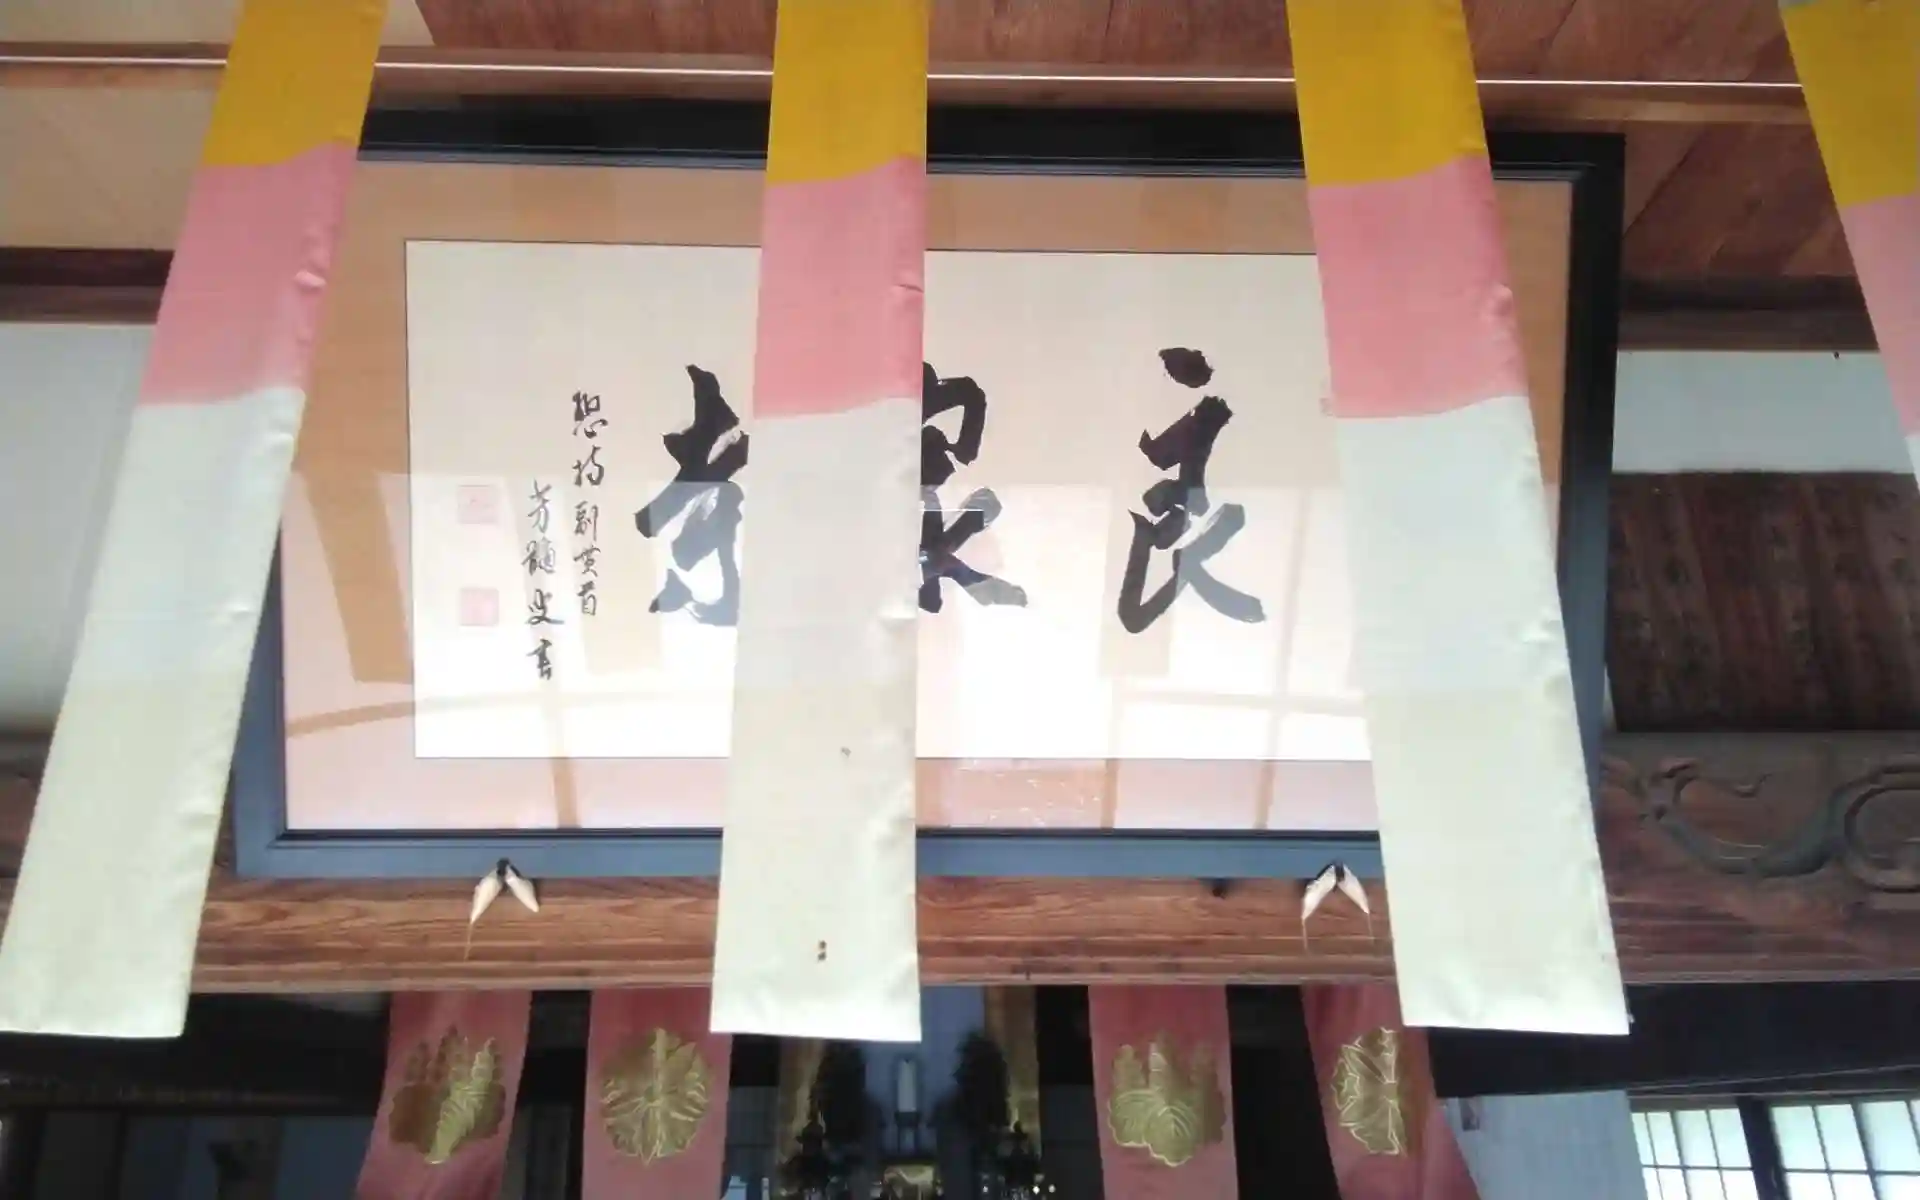 良 寺
總持副貫首
芳髄叟書